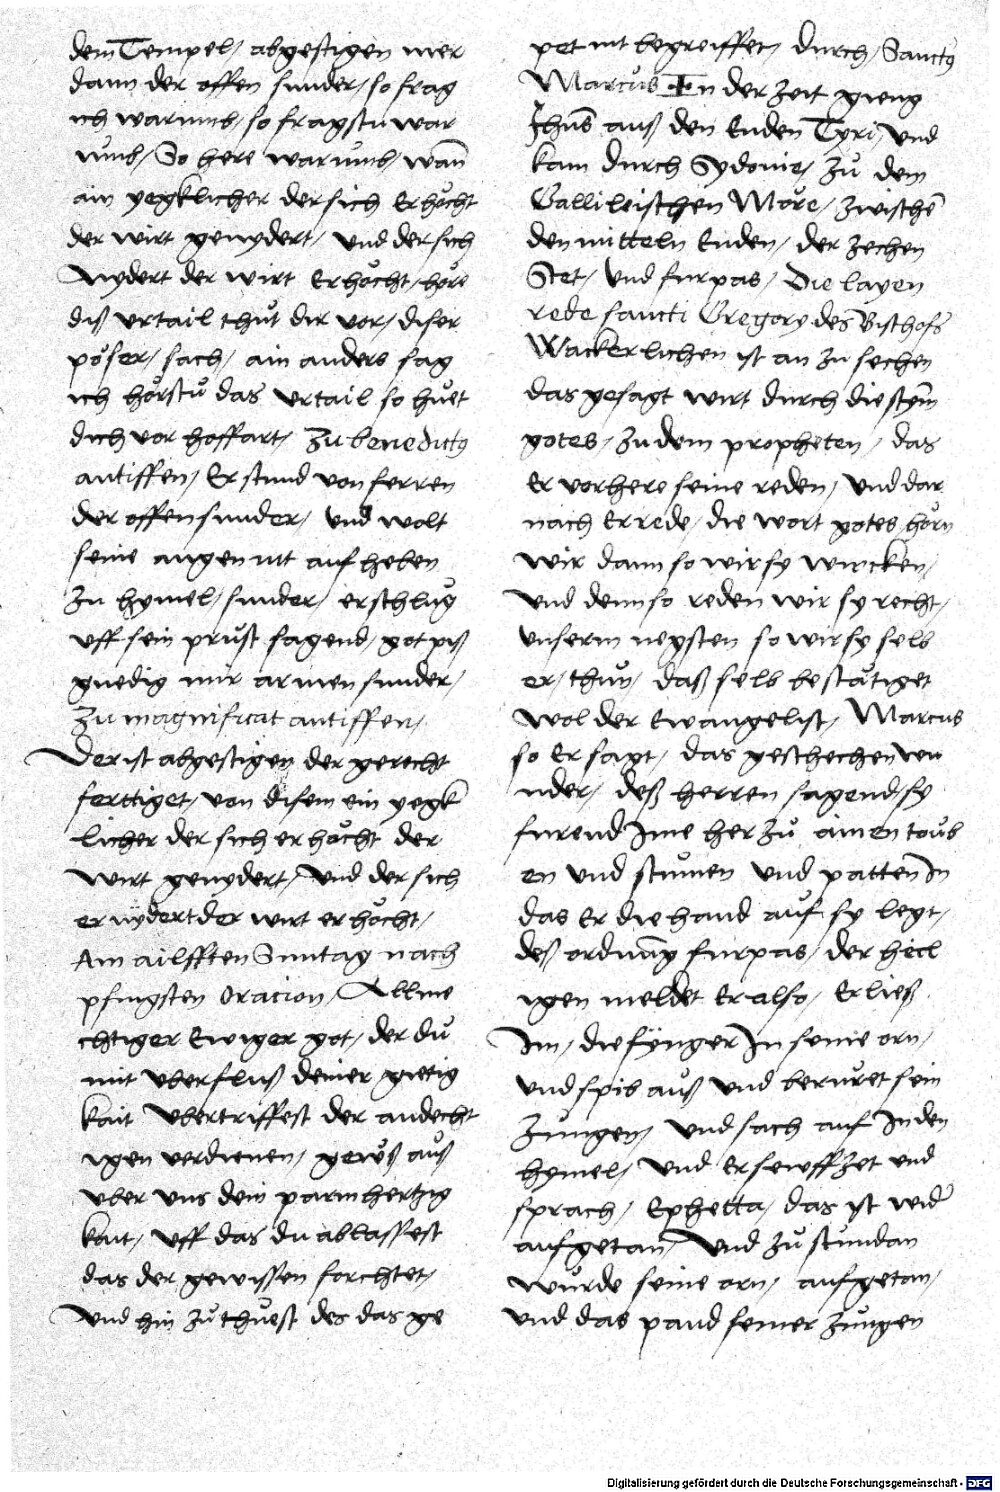 dem Tempel, abgestigen mer
dann der offen sunder, so frag
ich warumb, so fragstu war
vmb, So here warumb, wan̄
ain yegklicher der sich Erhöcht
der wirt genydert, vnd der sich
Nydert der wirt Erhöcht, höre
diß vrtail thůt dir vor, diser
pöser, sach, ain anders sag
ich hörstu das vrtail so hüet
dich vor hoffart, Zu benedictus
antiffen, Er stund von ferren
der offen sunder, vnd wolt
seine augen nit auf heben
zu hymel, sunder, erschlug
vff sein prust sagend, got piß
gnedig mir armen sunder,
Zu magnificat antiffen,
Der ist abgestigen der gerecht
ferttiget, von disem ein yegk
licher der sich erhöcht der
wirt genydert, vnd der sich
ernydert der wirt erhöcht,
Am ailfften Sunntag nach
pfingsten Oracion, Allme
chtiger Ewiger got, der du
mit vberfluß deiner guetig
kait vbertriffest der andecht
igen verdienen, gewß auß
vber vns dein parmhertzig
kait, vff das du ablassest
das der gewissen forchtet,
vnd hin zu thuest des das ge
pet nit begreiffet, durch, Sanctus
Marcus In der zeit gieng
Jhus̄ auß den Enden Tyri, vnd
kam durch Sydonie, zu dem
Gallileischen Möre, zwischē
den mitteln Enden, der zechen
Stet, vnd furpas, Die layen
rede sancti Gregory des Bischofs
Wackerlichen ist an zu sechen
das gesagt wirt durch die stym̄
gotes, zu dem propheten, das
Er vorhere seine reden, vnd dar
nach Er rede, die wort gotes hörn
wir dann so wir sy wircken,
vnd denn so reden wir sy recht,
vnserm negsten so wir sy selb
er, thun, daß selb bestätiget
wol der Ewangelist, Marcus
so Er sagt, das geschechen wu
nder, deß herren sagend sy
furend Ime her zu ainen toub
en vnd stumen vnd patten In
das Er die hand auf sy legt,
deß ordnung furpas, der heil
igen meldet Er also, Er ließ
Im, die fynger In seine orn,
vnd spib auß vnd beruret sein
zungen, vnd sach auf In den
hymel, vnd Er sewffzet vnd
sprach, Ephetta, das ist wid
aufgetan, vnd zu stundan
wurde seine orn, aufgetan,
vnd das pand seiner zungen
Digitalisierung gefördert durch die Deutsche Forschungsgemeinschaft - DFG